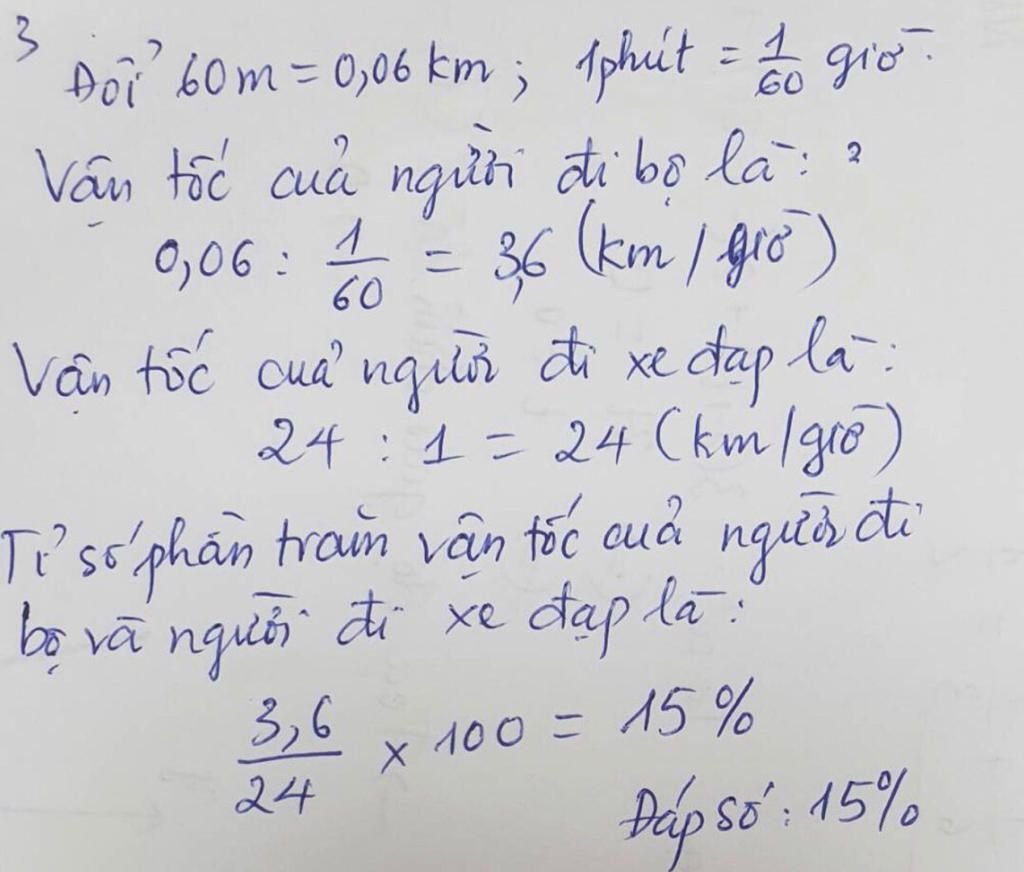 3
Đổi 60m = 0,06 km; 1phút = 1/60 giờ.
Vận tốc của người đi bộ là: 2
0,06 : 1/60 = 3,6 (km/giờ)
Vận tốc của người đi xe đạp là:
24 : 1 = 24 (km/giờ)
Tỉ số phần trăm vận tốc của người đi
bộ và người đi xe đạp là:
3,6/24 x 100 = 15%
Đáp số: 15%